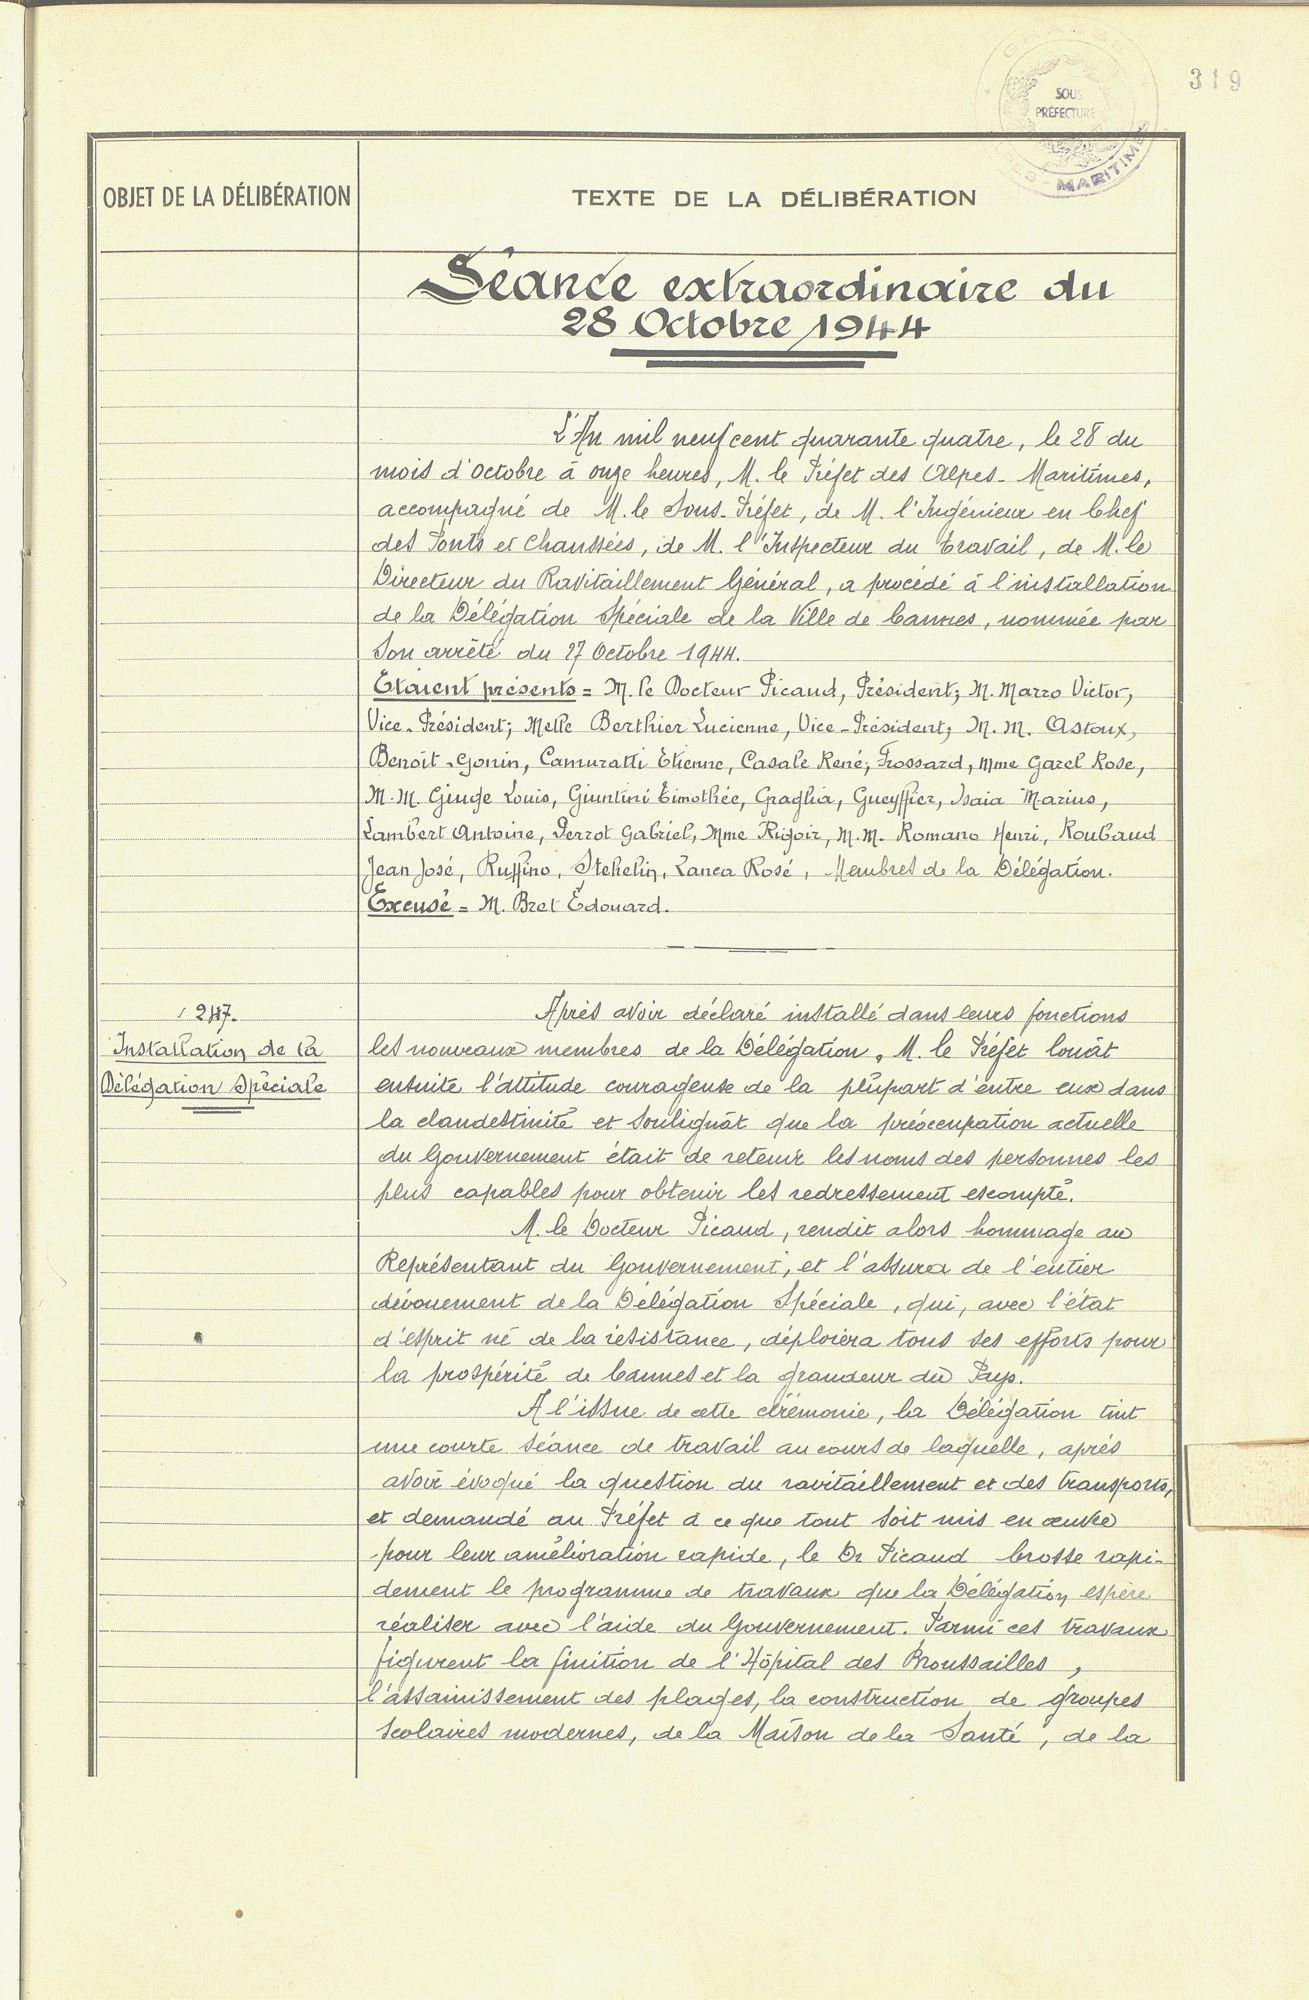 319
GRASSE
SOUS
PRÉFECTURE
MARITIMES
OBJET DE LA DÉLIBÉRATION
TEXTE DE LA DÉLIBÉRATION
Séance extraordinaire du
28 Octobre 1944
L'An mil neuf cent quarante quatre, le 28 du
mois d'octobre à onze heures, M. le Préfet des Alpes-Maritimes,
accompagné de M. le Sous-Préfet, de M. l'Ingénieur en Chef
des Ponts et Chaussées, de M. l'Inspecteur du Travail, de M. le
Directeur du Ravitaillement Général, a procédé à l'installation
de la Délégation Spéciale de la Ville de Cannes, nommée par
son arrêté du 27 Octobre 1944.
Etaient présents = M. le Docteur Picaud, Président; M. Marro Victor,
Vice-Président; Melle Berthier Lucienne, Vice-Président; M.M. Astoux,
Benoit-Gonin, Camuratti Etienne, Casale René, Frossard, Mme Garel Rose,
M.M. Giuge Louis, Giuntini Timothée, Graglia, Gueyffier, Isaia Marius,
Lambert Antoine, Perrot Gabriel, Mme Rigoir, M.M. Romano Henri, Roubaud
Jean José, Ruffino, Stehelin, Zanca Rosé, Membres de la Délégation.
Excusé = M. Bret Édouard.
247.
Installation de la
Délégation Spéciale
Après avoir déclaré installé dans leurs fonctions
les nouveaux membres de la Délégation, M. le Préfet louât
ensuite l'attitude courageuse de la plûpart d'entre eux dans
la clandestinité et soulignât que la préoccupation actuelle
du Gouvernement était de retenir les noms des personnes les
plus capables pour obtenir les redressement escompté.
M. le Docteur Picaud, rendit alors hommage au
Représentant du Gouvernement, et l'assura de l'entier
dévouement de la Délégation Spéciale, qui, avec l'état
d'esprit né de la résistance, déploiera tous ses efforts pour
la prospérité de Cannes et la grandeur du Pays.
A l'issue de cette cérémonie, la Délégation tint
une courte séance de travail au cours de laquelle, après
avoir évoqué la question du ravitaillement et des transports,
et demandé au Préfet à ce que tout soit mis en œuvre
pour leur amélioration rapide, le Dr Picaud brosse rapi-
dement le programme de travaux que la Délégation espère
réaliser avec l'aide du Gouvernement. Parmi ces travaux
figurent la finition de l'Hôpital des Broussailles,
l'assainissement des plages, la construction de groupes
scolaires modernes, de la Maison de la Santé, de la